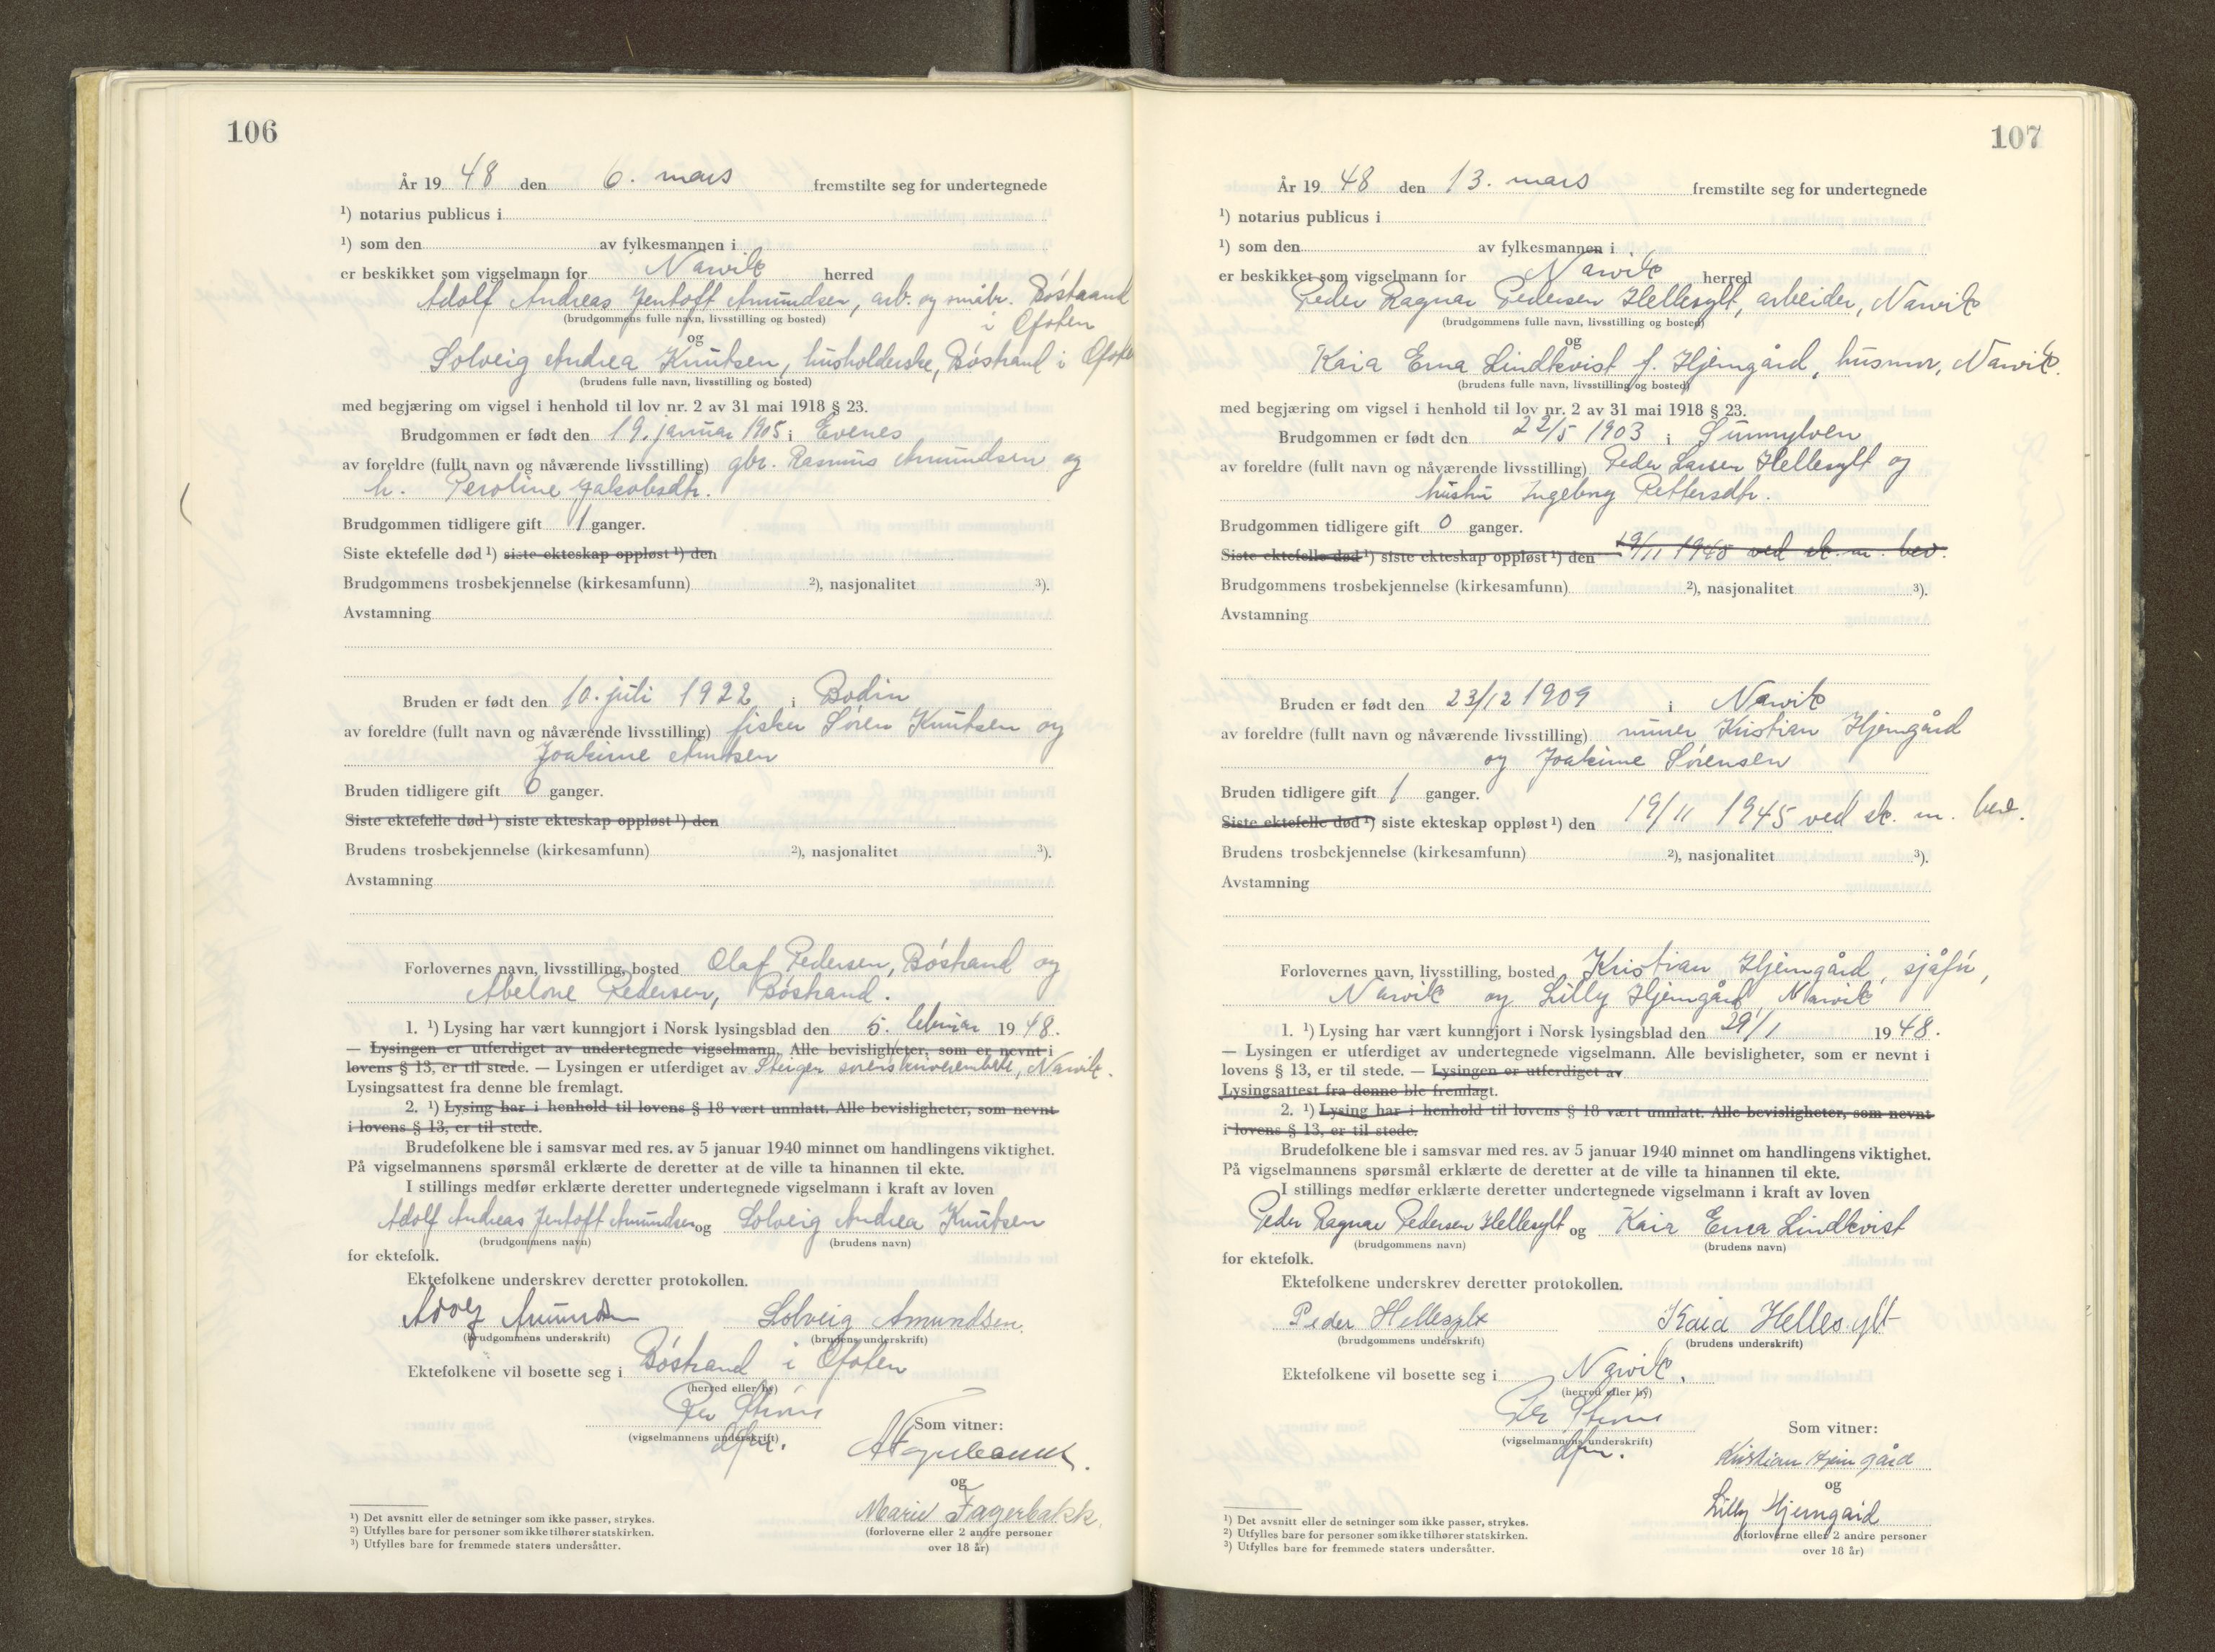 106
År 19 48 den 6. mars fremstilte seg for undertegnede
¹) notarius publicus i
¹) som den av fylkesmannen i
er beskikket som vigselmann for Narvik herred
Adolf Andreas Jentoft Amundsen, arb. og småbr. Bøstrand
i Ofoten
(brudgommens fulle navn, livsstilling og bosted)
og
Solveig Andrea Knutsen, husholderske, Bøstrand i Ofoten
(brudens fulle navn, livsstilling og bosted)
med begjæring om vigsel i henhold til lov nr. 2 av 31 mai 1918 § 23.
Brudgommen er født den 19. januar 1905 i Evenes
av foreldre (fullt navn og nåværende livsstilling) gbr. Rasmus Amundsen og
h. Peroline Jakobsdtr.
Brudgommen tidligere gift 1 ganger.
Siste ektefelle død ¹) siste ekteskap oppløst ¹) den
Brudgommens trosbekjennelse (kirkesamfunn) ²), nasjonalitet ³).
Avstamning
Bruden er født den 10. juli 1922 i Bodin
av foreldre (fullt navn og nåværende livsstilling) fisker Søren Knutsen og
Joakime Amtsen
Bruden tidligere gift 0 ganger.
Siste ektefelle død ¹) siste ekteskap oppløst ¹) den
Brudens trosbekjennelse (kirkesamfunn) ²), nasjonalitet ³).
Avstamning
Forlovernes navn, livsstilling, bosted Olaf Pedersen, Bøstrand og
Abelone Pedersen, Bøstrand.
1. ¹) Lysing har vært kunngjort i Norsk lysingsblad den 5. februar 19 48.
— Lysingen er utferdiget av undertegnede vigselmann. Alle bevisligheter, som er nevnt i
lovens § 13, er til stede. — Lysingen er utferdiget av sorenskriverembete, Narvik.
Lysingsattest fra denne ble fremlagt.
2. ¹) Lysing har i henhold til lovens § 18 vært unnlatt. Alle bevisligheter, som nevnt
i lovens § 13, er til stede.
Brudefolkene ble i samsvar med res. av 5 januar 1940 minnet om handlingens viktighet.
På vigselmannens spørsmål erklærte de deretter at de ville ta hinannen til ekte.
I stillings medfør erklærte deretter undertegnede vigselmann i kraft av loven
Adolf Andreas Jentoft Amundsen og Solveig Andrea Knutsen
(brudgommens navn) (brudens navn)
for ektefolk.
Ektefolkene underskrev deretter protokollen.
Adolf Amundsen Solveig Amundsen.
(brudgommens underskrift) (brudens underskrift)
Ektefolkene vil bosette seg i Bøstrand i Ofoten
(herred eller by)
Per
(vigselmannens underskrift)
Som vitner:
og
Marie Fagerbakk.
(forloverne eller 2 andre personer
over 18 år)
¹) Det avsnitt eller de setninger som ikke passer, strykes.
²) Utfylles bare for personer som ikke tilhører statskirken.
³) Utfylles bare for fremmede staters undersåtter.
107
År 19 48 den 13. mars fremstilte seg for undertegnede
¹) notarius publicus i
¹) som den av fylkesmannen i
er beskikket som vigselmann for Narvik herred
Peder Ragnar Pedersen Hellesylt, arbeider, Narvik
(brudgommens fulle navn, livsstilling og bosted)
og
Kaia Erna Lindkvist f. Hjemgård, husmor, Narvik.
(brudens fulle navn, livsstilling og bosted)
med begjæring om vigsel i henhold til lov nr. 2 av 31 mai 1918 § 23.
Brudgommen er født den 22/5 1903 i Sunnylven
av foreldre (fullt navn og nåværende livsstilling) Peder Larsen Hellesylt og
hustru Ingeborg Pettersdtr.
Brudgommen tidligere gift 0 ganger.
Siste ektefelle død ¹) siste ekteskap oppløst ¹) den 19/11 1945 ved sk. m. bev.
Brudgommens trosbekjennelse (kirkesamfunn) ²), nasjonalitet ³).
Avstamning
Bruden er født den 23/12 1909 i Narvik
av foreldre (fullt navn og nåværende livsstilling) murer Kristian Hjemgård
og Joakime Sørensen
Bruden tidligere gift 1 ganger.
Siste ektefelle død ¹) siste ekteskap oppløst ¹) den 19/11 1945 ved sk. m. bev.
Brudens trosbekjennelse (kirkesamfunn) ²), nasjonalitet ³).
Avstamning
Forlovernes navn, livsstilling, bosted Kristian Hjemgård, sjåfør,
Narvik og Lilly Hjemgård, Narvik
1. ¹) Lysing har vært kunngjort i Norsk lysingsblad den 29/1 19 48.
— Lysingen er utferdiget av undertegnede vigselmann. Alle bevisligheter, som er nevnt i
lovens § 13, er til stede. — Lysingen er utferdiget av
Lysingsattest fra denne ble fremlagt.
2. ¹) Lysing har i henhold til lovens § 18 vært unnlatt. Alle bevisligheter, som nevnt
i lovens § 13, er til stede.
Brudefolkene ble i samsvar med res. av 5 januar 1940 minnet om handlingens viktighet.
På vigselmannens spørsmål erklærte de deretter at de ville ta hinannen til ekte.
I stillings medfør erklærte deretter undertegnede vigselmann i kraft av loven
Peder Ragnar Pedersen Hellesylt og Kaia Erna Lindkvist
(brudgommens navn) (brudens navn)
for ektefolk.
Ektefolkene underskrev deretter protokollen.
Peder Hellesylt Kaia Hellesylt
(brudgommens underskrift) (brudens underskrift)
Ektefolkene vil bosette seg i Narvik.
(herred eller by)
Per
(vigselmannens underskrift)
Som vitner:
Kristian Hjemgård
og
Lilly Hjemgård
(forloverne eller 2 andre personer
over 18 år)
¹) Det avsnitt eller de setninger som ikke passer, strykes.
²) Utfylles bare for personer som ikke tilhører statskirken.
³) Utfylles bare for fremmede staters undersåtter.